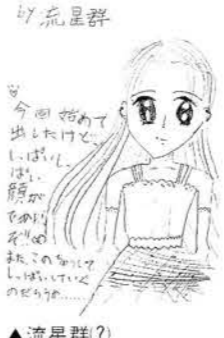 by 流星群
今回 始めて
出したけどっ
しっぱいし
ぱい
顔が
でかい
ぞ!!
また、このようにして
しっぱいしていく
のだろうか……
▲流星群(?)